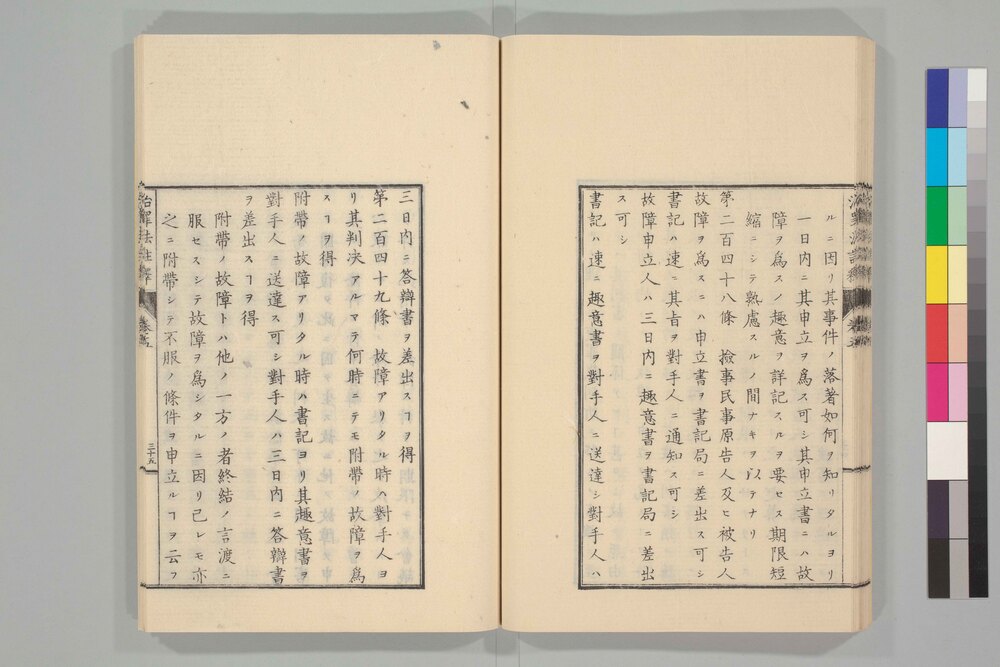 ルニ因リ其事件ノ落著如何ヲ知リタルヨリ
一日内ニ其申立ヲ爲ス可シ其申立書ニハ故
障ヲ爲スノ趣意ヲ詳記スルヲ要セス期限短
縮ニシテ熟慮スルノ間ナキヲ以テナリ
第二百四十八條 撿事民事原告人及ヒ被告人
故障ヲ爲スニハ申立書ヲ書記局ニ差出ス可シ
書記ハ速ニ其旨ヲ對手人ニ通知ス可シ
故障申立人ハ三日内ニ趣意書ヲ書記局ニ差出
ス可シ
書記ハ速ニ趣意書ヲ對手人ニ送達シ對手人ハ
三日内ニ答辯書ヲ差出スヿヲ得
第二百四十九條 故障アリタル時ハ對手人ヨ
リ其判决アルマテ何時ニテモ附帶ノ故障ヲ爲
スヿヲ得
附帶ノ故障アリタル時ハ書記ヨリ其趣意書ヲ
對手人ニ送達ス可シ對手人ハ三日内ニ答辯書
ヲ差出スヿヲ得
附帶ノ故障トハ他ノ一方ノ者終結ノ言渡ニ
服セスシテ故障ヲ爲シタルニ因リ己レモ亦
之ニ附帶シテ不服ノ條件ヲ申立ルヿヲ云フ
治罪法註釋 卷之五
三十五